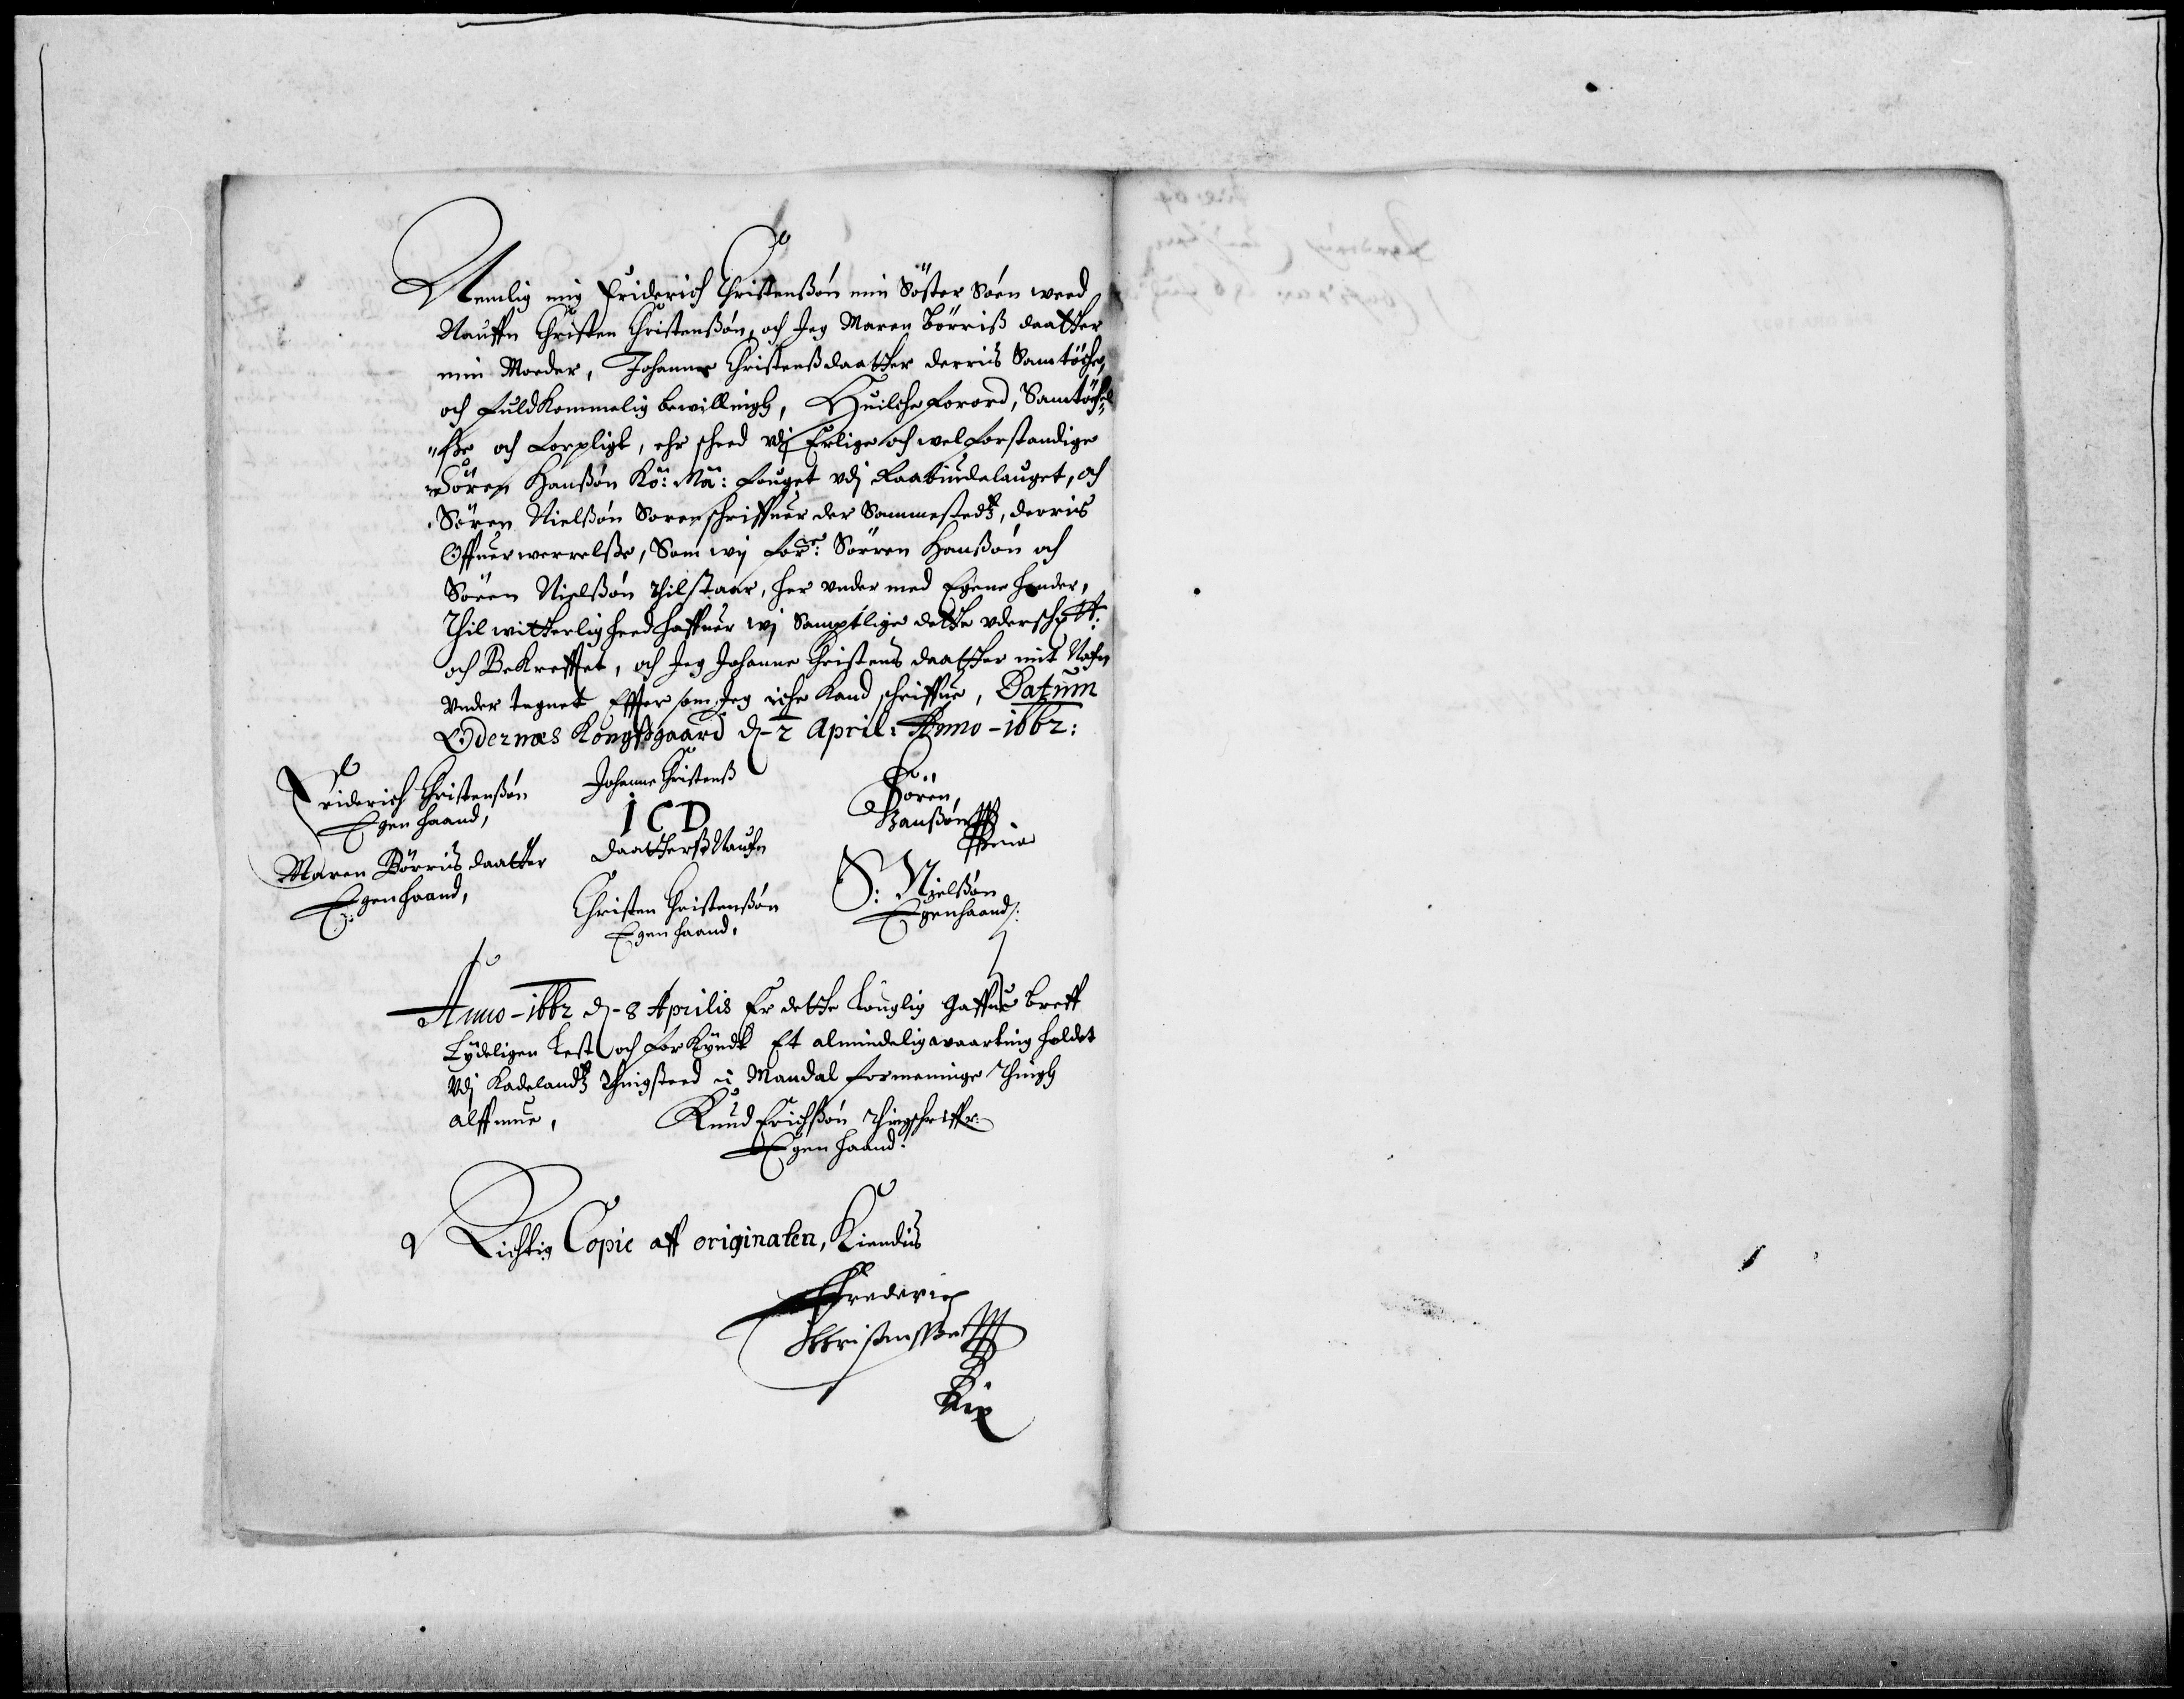 Nemlig mig Friderich Christenßøn min Søster Søen weed
Nauffn Christen Christenßøn, och Jeg Maren Børriß daatter
min Moeder, Johanne Christenßdaatter derris Samtÿche,
och fuldkommelig bewillingh, Huilche forord, Samtÿchel
ße och forpligt, ehr scheed vdj Erlige och wel forstandige
Søren Hanßøn Kö: Ma: Fouget vdj Raabÿudelauget, och
Søren Nielßøn Sorenschriffuer der Sammestedtz, derris
Offuerwerrelße, Som wij forne: Sørren Hanßøn och
Søren Nielßøn thilstaar, her vnder med Egene hender,
Thil witterligheed haffuer wj Samptlige dette vderschr:
och Bekrefftet, och Jeg Johanne Christens daatter mit Nafn
vnder tegnet Effter som Jeg iche kand schriffue, Datum
Odernæs Kongßgaard d- 2 April: Anno - 1662:
Friderich Christenßøn
Egen haand,
Johanne Christenß
I C D
daatterß Naufn
Søren
Hanßøn
Maren Børris daatter
Egen haand,
Christen Christenßøn
Egen haand,
S: Nielßøn
Egen haand:
Anno - 1662 d- 8 Aprilis Er dette Konglig gaffue breff
Lÿdeligen lest och forkÿndt Et almindelig waarting holdet
vdj Kadelandtz thingsteed i Mandal formeninge Thingh
alffmue,
Knud Erichßøn thingschriffr:
Egen haand:
Richtig Copie aff originalen, Kiendis
Frederich
Christenssøn